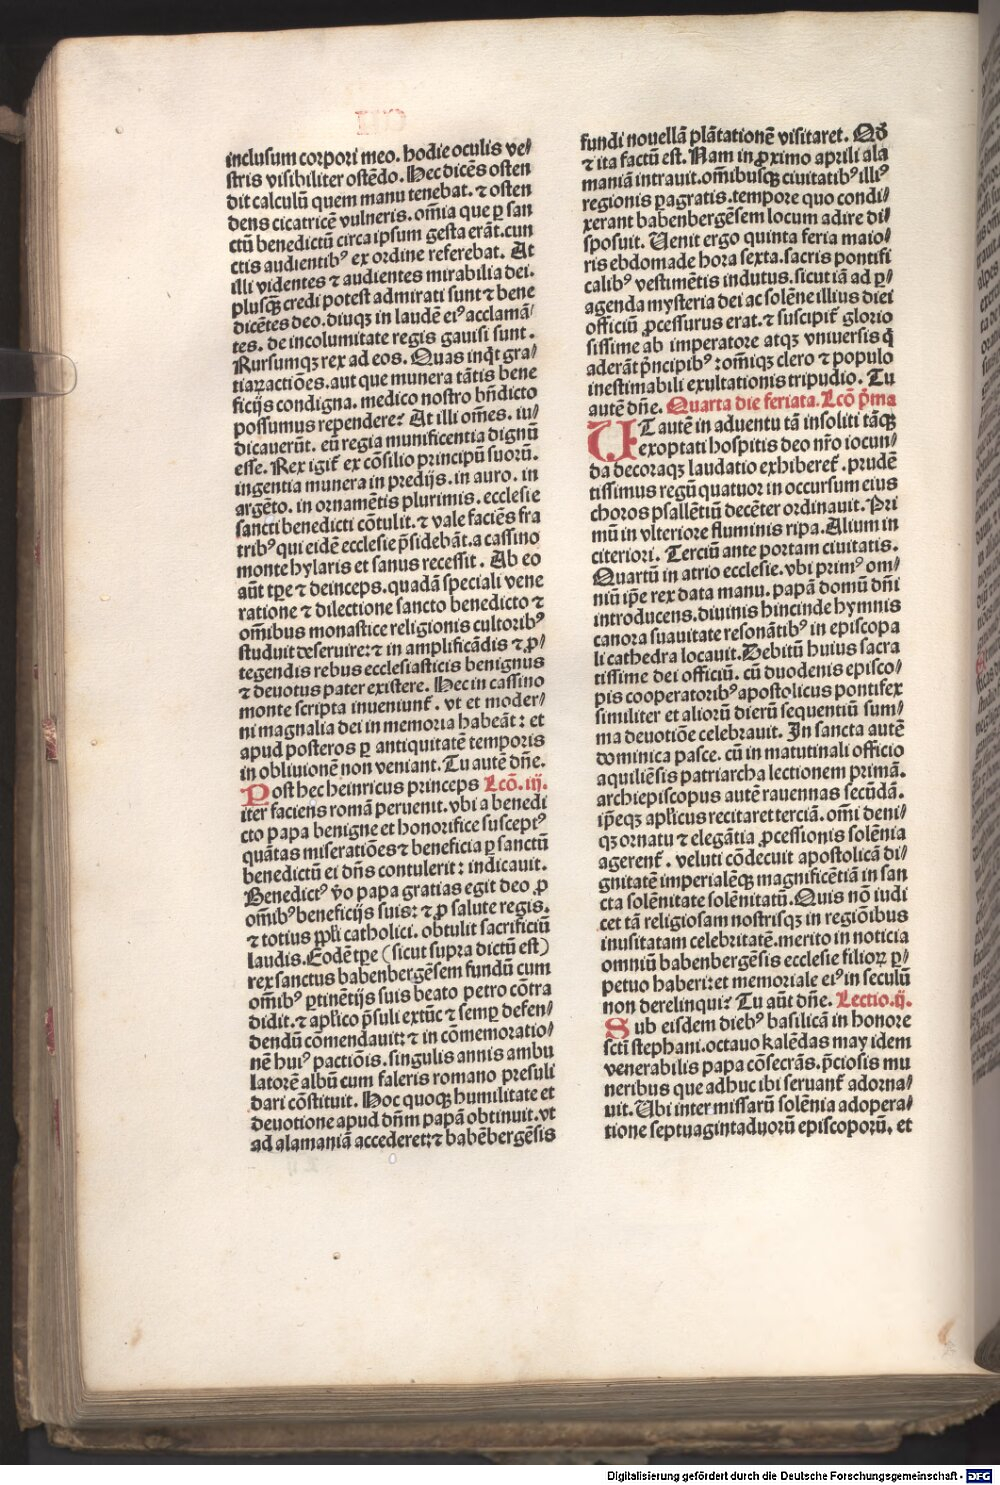 inclusum corpori meo. hodie oculis ve⸗
stris visibiliter ostēdo. Hec dicēs osten
dit calculū quem manu tenebat. ⁊ osten
dens cicatricē vulneris. om̄ia que ꝑ san
ctū benedictū circa ipsum gesta erāt. cun
ctis audientibꝰ ex ordine referebat. At
illi videntes ⁊ audientes mirabilia dei.
plusqꝫ credi potest admirati sunt ⁊ bene
dicētes deo. diuqꝫ in laudē eiꝰ acclamā⸗
tes. de incolumitate regis gauisi sunt.
Rursumqꝫ rex ad eos. Quas inq̇t gra⸗
tiaꝝ actiōes. aut que munera tātis bene
ficijs condigna. medico nostro bn̄dicto
possumus rependere? At illi om̄es. iu⸗
dicauerūt. eū regia munificentia dignū
esse. Rex igit̄ ex cōsilio principū suorū.
ingentia munera in predijs. in auro. in
argēto. in ornamētis plurimis. ecclesie
sancti benedicti cōtulit. ⁊ vale faciēs fra
tribꝰ qui eidē ecclesie p̄sidebāt. a cassino
monte hylaris et sanus recessit. Ab eo
aūt tꝑe ⁊ deinceps. quadā speciali vene
ratione ⁊ dilectione sancto benedicto ⁊
om̄ibus monastice religionis cultoribꝰ
studuit deseruire: ⁊ in amplificādis ⁊ ꝓ⸗
tegendis rebus ecclesiasticis benignus
⁊ deuotus pater existere. Hec in cassino
monte scripta inueniunt̄. vt et moder⸗
ni magnalia dei in memoria habeāt: et
apud posteros ꝑ antiquitatē temporis
in obliuionē non veniant. Tu autē dn̄e.
Post hec heinricus princeps Lcō. iij.
iter faciens romā peruenit. vbi a benedi
cto papa benigne et honorifice susceptꝰ
quātas miseratiōes ⁊ beneficia ꝑ sanctū
benedictū ei dn̄s contulerit: indicauit.
Benedictꝰ v̄o papa gratias egit deo ꝓ
om̄ibꝰ beneficijs suis: ⁊ ꝓ salute regis.
⁊ totius pp̄li catholici. obtulit sacrificiū
laudis. Eodē tꝑe (sicut supra dictū est)
rex sanctus babenbergēsem fundū cum
om̄ibꝰ ꝑtinētijs suis beato petro cōtra
didit. ⁊ apl̄ico p̄suli extūc ⁊ semꝑ defen⸗
dendū cōmendauit: ⁊ in cōmemoratio⸗
nē huiꝰ pactiōis. singulis annis ambu
latorē albū cum faleris romano presuli
dari cōstituit. Hoc quoqꝫ humilitate et
deuotione apud dn̄m papā obtinuit. vt
ad alamaniā accederet: ⁊ babēbergēsis
fundi nouellā plātationē visitaret. Qd̄
⁊ ita factū est. Nam in ꝓximo aprili ala
maniā intrauit. om̄ibusqꝫ ciuitatibꝰ illiꝰ
regionis ꝑagratis. tempore quo condi⸗
xerant babenbergēsem locum adire di⸗
sposuit. Venit ergo quinta feria maio⸗
ris ebdomade hora sexta. sacris pontifi
calibꝰ vestimētis indutus. sicut iā ad ꝑ⸗
agenda mysteria dei ac solēne illius diei
officiū ꝓcessurus erat. ⁊ suscipit̄ glorio
sissime ab imperatore atqꝫ vniuersis q̄
aderāt p̄ncipibꝰ: om̄iqꝫ clero ⁊ populo
inestimabili exultationis tripudio. Tu
autē dn̄e. Quarta die feriata. Lcō p̄ma
UT autē in aduentu tā insoliti tāqꝫ
exoptati hospitis deo nr̄o iocun⸗
da decoraqꝫ laudatio exhiberet̄. prudē
tissimus regū quatuor in occursum eius
choros psallētiū decēter ordinauit. Pri
mū in vlteriore fluminis ripa. Alium in
citeriori. Terciū ante portam ciuitatis.
Quartū in atrio ecclesie. vbi primꝰ om⸗
niū ip̄e rex data manu. papā domū dn̄i
introducens. diuinis hincinde hymnis
canora suauitate resonātibꝰ in episcopa
li cathedra locauit. Debitū huius sacra
tissime dei officiū. cū duodenis episco⸗
pis cooperatoribꝰ apostolicus pontifex
similiter et aliorū dierū sequentiū sum⸗
ma deuotiōe celebrauit. In sancta autē
dominica pasce. cū in matutinali officio
aquiliēsis patriarcha lectionem primā.
archiepiscopus autē rauennas secūdā.
ip̄eqꝫ apl̄icus recitaret terciā. om̄i deni⸗
qꝫ ornatu ⁊ elegātia ꝓcessionis solēnia
agerent̄. veluti cōdecuit apostolicā di⸗
gnitatē imperialēqꝫ magnificētiā in san
cta solēnitate solēnitatū. Quis nō iudi
cet tā religiosam nostrisqꝫ in regiōibus
inusitatam celebritatē. merito in noticia
omniū babenbergēsis ecclesie filioꝝ ꝑ⸗
petuo haberi: et memoriale eiꝰ in seculū
non derelinqui? Tu aūt dn̄e. Lectio. ij.
Sub eisdem diebꝰ basilicā in honore
sctī stephani. octauo kalēdas may idem
venerabilis papa cōsecrās. p̄ciosis mu
neribus que adhuc ibi seruant̄ adorna⸗
uit. Ubi inter missarū solēnia adopera⸗
tione septuagintaduorū episcoporū. et
Digitalisierung gefördert durch die Deutsche Forschungsgemeinschaft - DFG